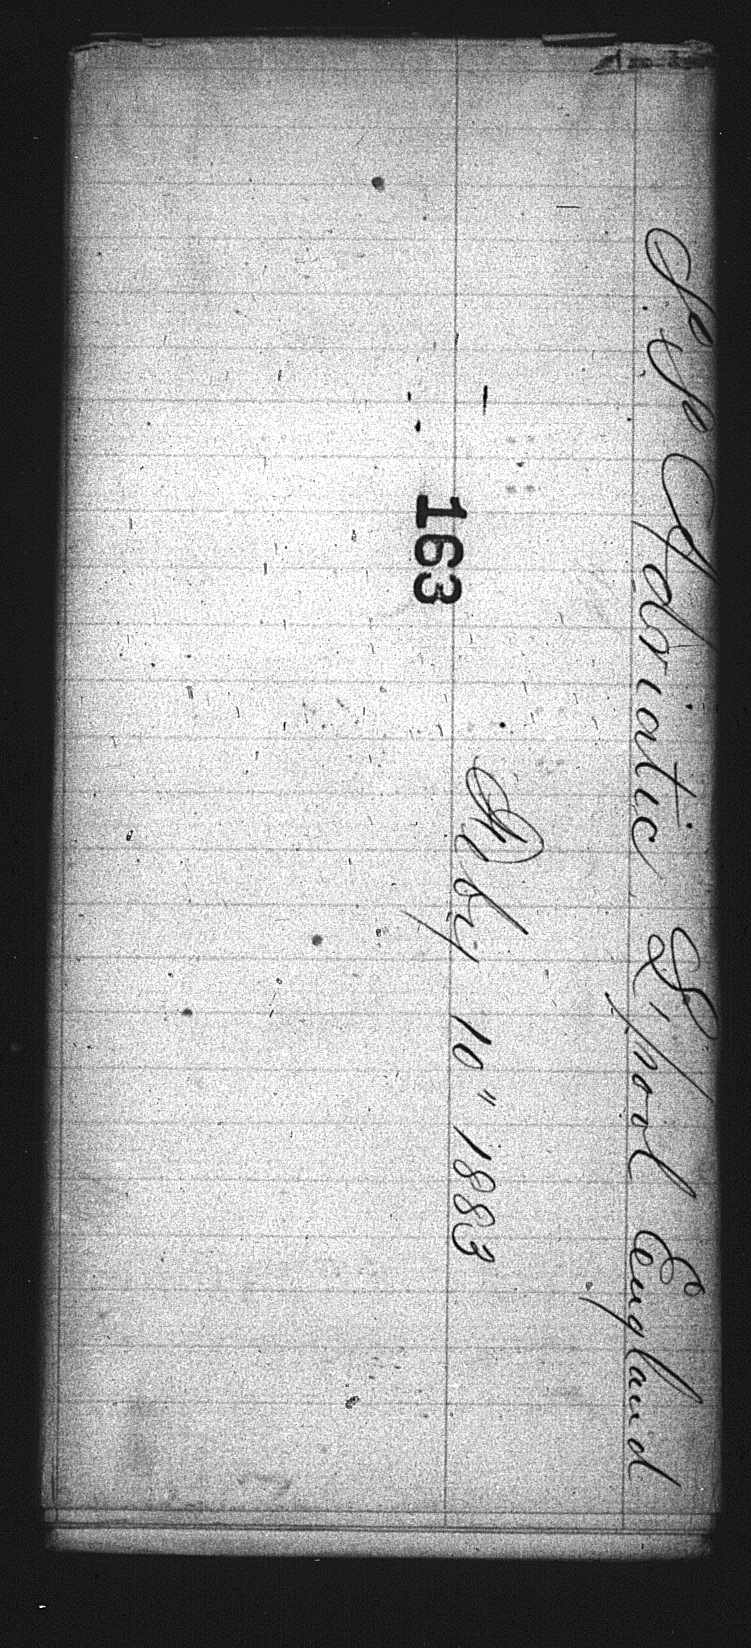 S.S. Adriatic L'pool England
Feby 10" 1883
163